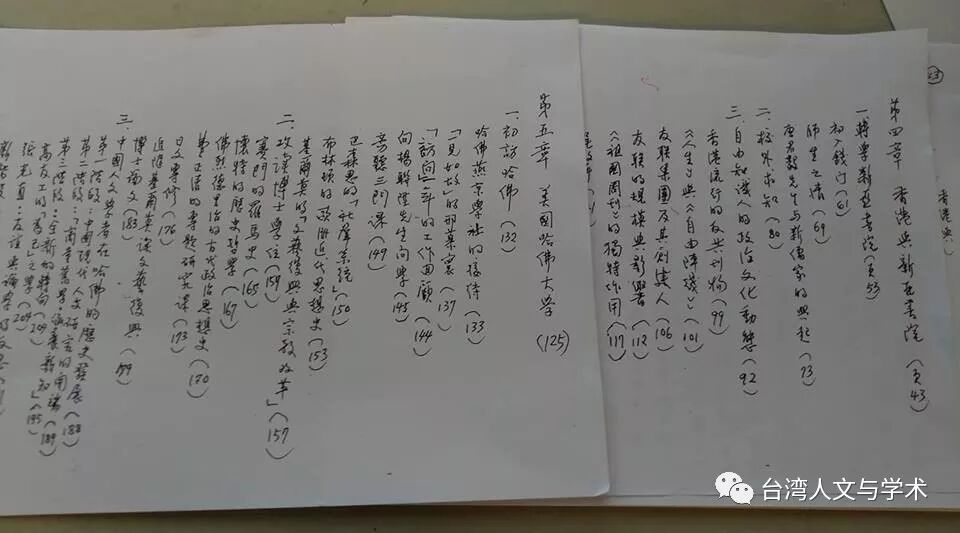 香港與
(43)
第四章 香港與新亞書院 (頁43)
一、轉學新亞書院 (頁53)
初入錢門 (61)
師生之情 (69)
唐君毅先生与新儒家的興起 (73)
二、校外求知 (80)
三、自由知識人的政治文化動態 (92)
香港流行的反共刊物 (99)
《人生》與《自由陣綫》(101)
友聯集團及其創建人 (106)
友聯的規模與影響 (112)
《祖國周刊》的獨特作用 (117)
第五章 美國哈佛大学 (125)
一、初訪哈佛 (132)
哈佛燕京學社的接待 (133)
「一見如故」的那幕宴 (137)
「訪问」一年的工作回顧 (144)
向楊聯陞先生问學 (145)
旁聽三門课 (149)
巴森思的「社群系統」(150)
布林頓的歐洲近代思想史 (153)
基爾莫的「文藝復興與宗教改革」(157)
二、攻讀博士學位 (159)
賽門的羅馬史 (165)
懷特的歷史哲學 (167)
佛烈德里治的古代政治思想史 (170)
費正清的專題研究课 (173)
日文進修 (176)
追隨基爾莫读文藝復興 (179)
博士論文 (183)
三、中國人文學者在哈佛的歷史發展
第一階段：中國現代人文研究的開端 (189)
第二階段：
第三階段：全新的轉向 (209)
高友工的「為己」之學 (209)
張光直：友誼與論學
台湾人文与学术